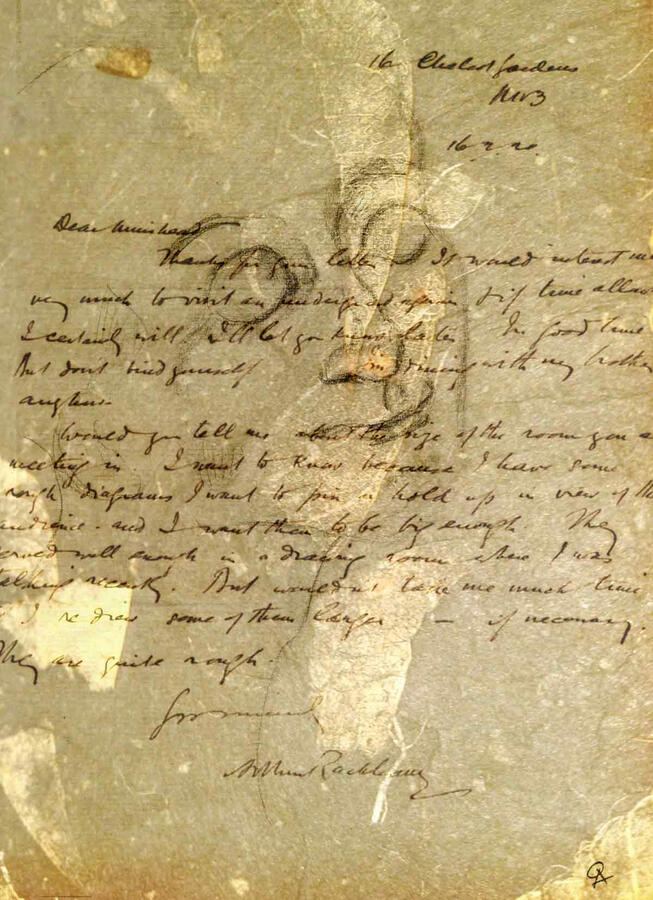 16 Chalcot Gardens
NW3
16. 2. 20.
Dear
Thanks for your letter. It would interest me
very much to visit an again & if time allow
I certainly will. I'll let you know later. In good time
But don't bind yourself I'm dining with my brother
anyhow.
Would you tell me about the size of the room you a
meeting in. I want to know because I have some
rough diagrams I want to pin or hold up in view of th
audience. and I want them to be big enough. They
served well enough in a drawing room where I was
talking recently. But wouldn't take me much time
I re drew some of them larger — if necessary.
They are quite rough.
Yours sincerely
Arthur Rackham